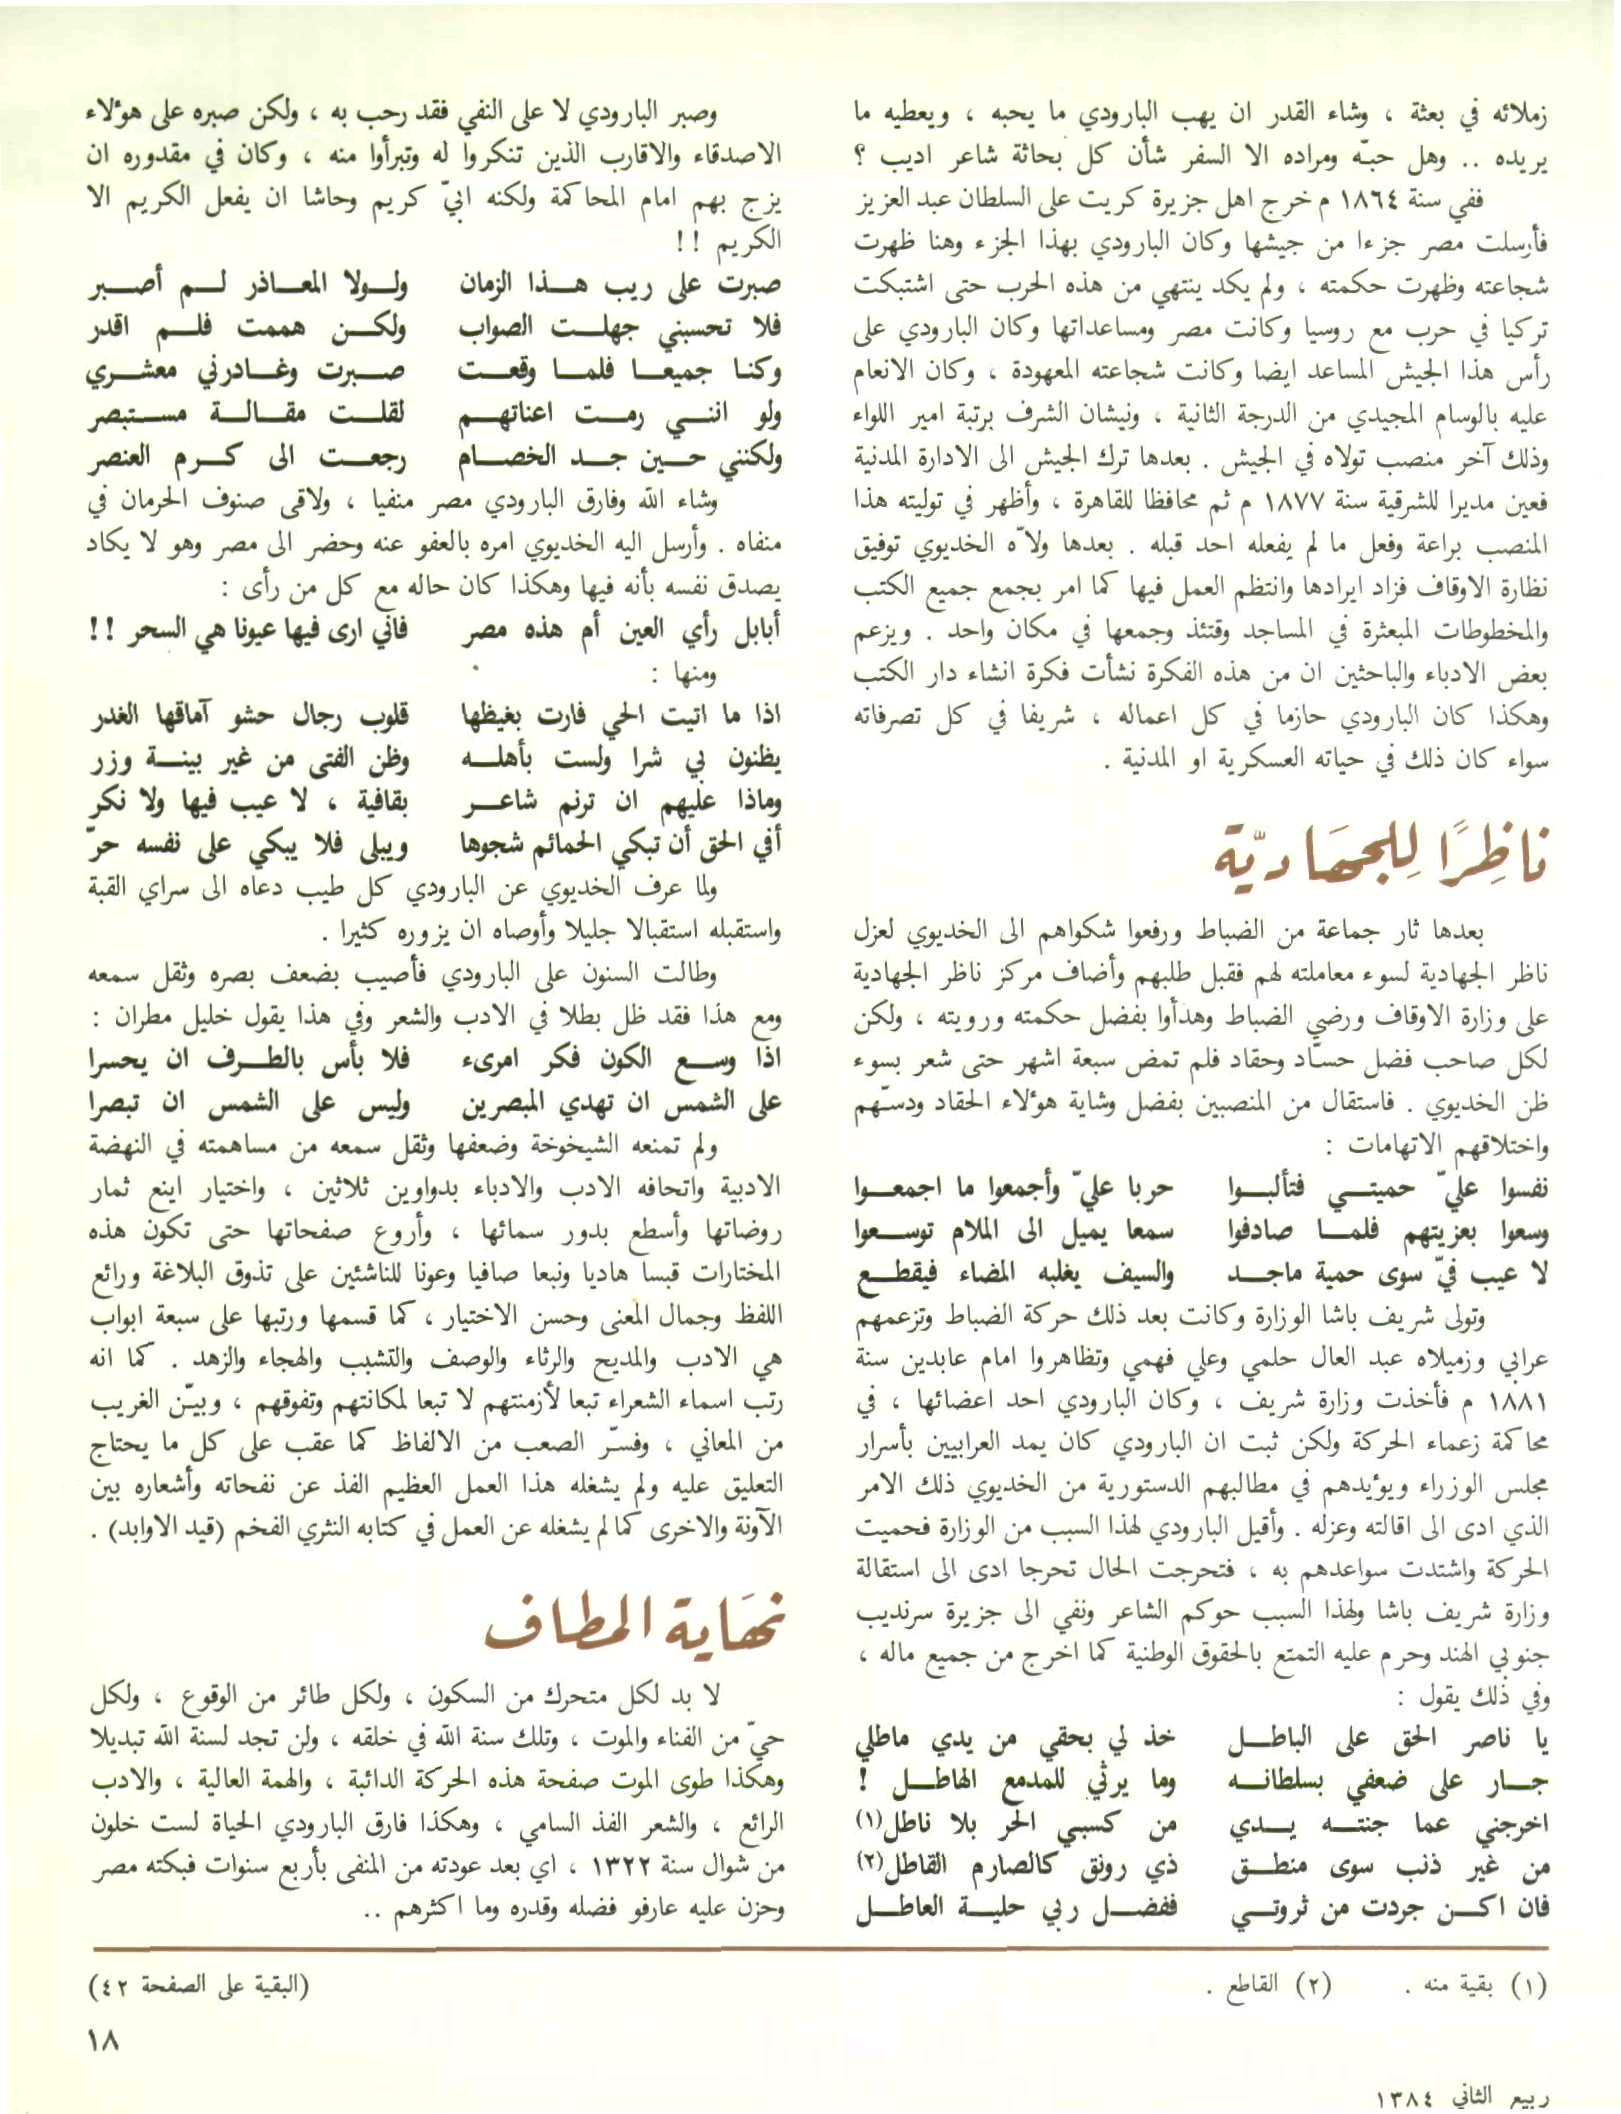 زملائه في بعثة ، وشاء القدر ان يهب البارودي ما يحبه ، ويعطيه ما
يريده .. وهل حبّه ومراده الا السفر شأن كل بحاثة شاعر اديب ؟
ففي سنة ١٨٦٤ م خرج اهل جزيرة كريت على السلطان عبد العزيز
فأرسلت مصر جزءا من جيشها وكان البارودي بهذا الجزء وهنا ظهرت
شجاعته وظهرت حكمته ، ولم يكد ينتهي من هذه الحرب حتى اشتبكت
تركيا في حرب مع روسيا وكانت مصر ومساعداتها وكان البارودي على
رأس هذا الجيش المساعد ايضا وكانت شجاعته المعهودة ، وكان الانعام
عليه بالوسام المجيدي من الدرجة الثانية ، ونيشان الشرف برتبة امير اللواء
وذلك آخر منصب تولاه في الجيش . بعدها ترك الجيش الى الادارة المدنية
فعين مديرا للشرقية سنة ١٨٧٧ م ثم محافظا للقاهرة ، وأظهر في توليته هذا
المنصب براعة وفعل ما لم يفعله احد قبله . بعدها ولاّه الخديوي توفيق
نظارة الاوقاف فزاد ايرادها وانتظم العمل فيها كما امر بجمع جميع الكتب
والمخطوطات المبعثرة في المساجد وقتئذ وجمعها في مكان واحد . ويزعم
بعض الادباء والباحثين ان من هذه الفكرة نشأت فكرة انشاء دار الكتب
وهكذا كان البارودي حازما في كل اعماله ، شريفا في كل تصرفاته
سواء كان ذلك في حياته العسكرية او المدنية .
ناظِرًا لِلجهَاديّة
بعدها ثار جماعة من الضباط ورفعوا شكواهم الى الخديوي لعزل
ناظر الجهادية لسوء معاملته لهم فقبل طلبهم وأضاف مركز ناظر الجهادية
على وزارة الاوقاف ورضي الضباط وهدأوا بفضل حكمته ورويته ، ولكن
لكل صاحب فضل حسّاد وحقاد فلم تمض سبعة اشهر حتى شعر بسوء
ظن الخديوي . فاستقال من المنصبين بفضل وشاية هؤلاء الحقاد ودسّهم
واختلاقهم الاتهامات :
نفسوا عليّ حميتي فتألبوا حربا عليّ وأجمعوا ما اجمعوا
وسعوا بعزيتهم فلما صادفوا سمعا يميل الى الملام توسعوا
لا عيب فيّ سوى حمية ماجد والسيف يغلبه المضاء فيقطع
وتولى شريف باشا الوزارة وكانت بعد ذلك حركة الضباط وتزعمهم
عرابي وزميلاه عبد العال حلمي وعلي فهمي وتظاهروا امام عابدين سنة
١٨٨١ م فأخذت وزارة شريف ، وكان البارودي احد اعضائها ، في
محاكمة زعماء الحركة ولكن ثبت ان البارودي كان يمد العرابيين بأسرار
مجلس الوزراء ويؤيدهم في مطالبهم الدستورية من الخديوي ذلك الامر
الذي ادى الى اقالته وعزله . وأقيل البارودي لهذا السبب من الوزارة فحميت
الحركة واشتدت سواعدهم به ، فتحرجت الحال تحرجا ادى الى استقالة
وزارة شريف باشا ولهذا السبب حوكم الشاعر ونفي الى جزيرة سرنديب
جنوبي الهند وحرم عليه التمتع بالحقوق الوطنية كما اخرج من جميع ماله ،
وفي ذلك يقول :
يا ناصر الحق على الباطل خذ لي بحقي من يدي ماطلي
جار على ضعفي بسلطانه وما يرثي للمدمع الهاطل !
اخرجني عما جنته يدي من كسبي الحر بلا ناطل(١)
من غير ذنب سوى منطق ذي رونق كالصارم القاطل(٢)
فان اكن جردت من ثروتي ففضل ربي حلية العاطل
وصبر البارودي لا على النفي فقد رحب به ، ولكن صبره على هؤلاء
الاصدقاء والاقارب الذين تنكروا له وتبرأوا منه ، وكان في مقدوره ان
يزج بهم امام المحاكمة ولكنه ابيّ كريم وحاشا ان يفعل الكريم الا
الكريم !!
صبرت على ريب هذا الزمان ولولا المعاذر لم أصبر
فلا تحسبني جهلت الصواب ولكن هممت فلم اقدر
وكنا جميعا فلما وقعت صبرت وغادرني معشري
ولو انني رمت اعناتهم لقلت مقالة مستبصر
ولكنني حين جد الخصام رجعت الى كرم العنصر
وشاء الله وفارق البارودي مصر منفيا ، ولاقى صنوف الحرمان في
منفاه . وأرسل اليه الخديوي امره بالعفو عنه وحضر الى مصر وهو لا يكاد
يصدق نفسه بأنه فيها وهكذا كان حاله مع كل من رأى :
أبابل رأي العين أم هذه مصر فاني ارى فيها عيونا هي السحر !!
ومنها :
اذا ما اتيت الحي فارت بغيظها قلوب رجال حشو آماقها الغدر
يظنون بي شرا ولست بأهله وظن الفتى من غير بينة وزر
وماذا عليهم ان ترنم شاعر بقافية ، لا عيب فيها ولا نكر
أفي الحق أن تبكي الحمائم شجوها ويبلى فلا يبكي على نفسه حرّ
ولما عرف الخديوي عن البارودي كل طيب دعاه الى سراي القبة
واستقبله استقبالا جليلا وأوصاه ان يزوره كثيرا .
وطالت السنون على البارودي فأصيب بضعف بصره وثقل سمعه
ومع هذا فقد ظل بطلا في الادب والشعر وفي هذا يقول خليل مطران :
اذا وسع الكون فكر امرىء فلا بأس بالطرف ان يحسرا
على الشمس ان تهدي المبصرين وليس على الشمس ان تبصرا
ولم تمنعه الشيخوخة وضعفها وثقل سمعه من مساهمته في النهضة
الادبية واتحافه الادب والادباء بدواوين ثلاثين ، واختيار اينع ثمار
روضاتها وأسطع بدور سمائها ، وأروع صفحاتها حتى تكون هذه
المختارات قبسا هاديا ونبعا صافيا وعونا للناشئين على تذوق البلاغة ورائع
اللفظ وجمال المعنى وحسن الاختيار ، كما قسمها ورتبها على سبعة ابواب
هي الادب والمديح والرثاء والوصف والتشبب والهجاء والزهد . كما انه
رتب اسماء الشعراء تبعا لأزمنتهم لا تبعا لمكانتهم وتفوقهم ، وبيّن الغريب
من المعاني ، وفسّر الصعب من الالفاظ كما عقب على كل ما يحتاج
التعليق عليه ولم يشغله هذا العمل العظيم الفذ عن نفحاته وأشعاره بين
الآونة والاخرى كما لم يشغله عن العمل في كتابه النثري الفخم (قيد الاوابد) .
نهَاية المطاف
لا بد لكل متحرك من السكون ، ولكل طائر من الوقوع ، ولكل
حيّ من الفناء والموت ، وتلك سنة الله في خلقه ، ولن تجد لسنة الله تبديلا
وهكذا طوى الموت صفحة هذه الحركة الدائبة ، والهمة العالية ، والادب
الرائع ، والشعر الفذ السامي ، وهكذا فارق البارودي الحياة لست خلون
من شوال سنة ١٣٢٢ ، اي بعد عودته من المنفى بأربع سنوات فبكته مصر
وحزن عليه عارفو فضله وقدره وما اكثرهم ..
(١) بقية منه . (٢) القاطع .
(البقية على الصفحة ٤٢)
١٨
ربيع الثاني ١٣٨٤